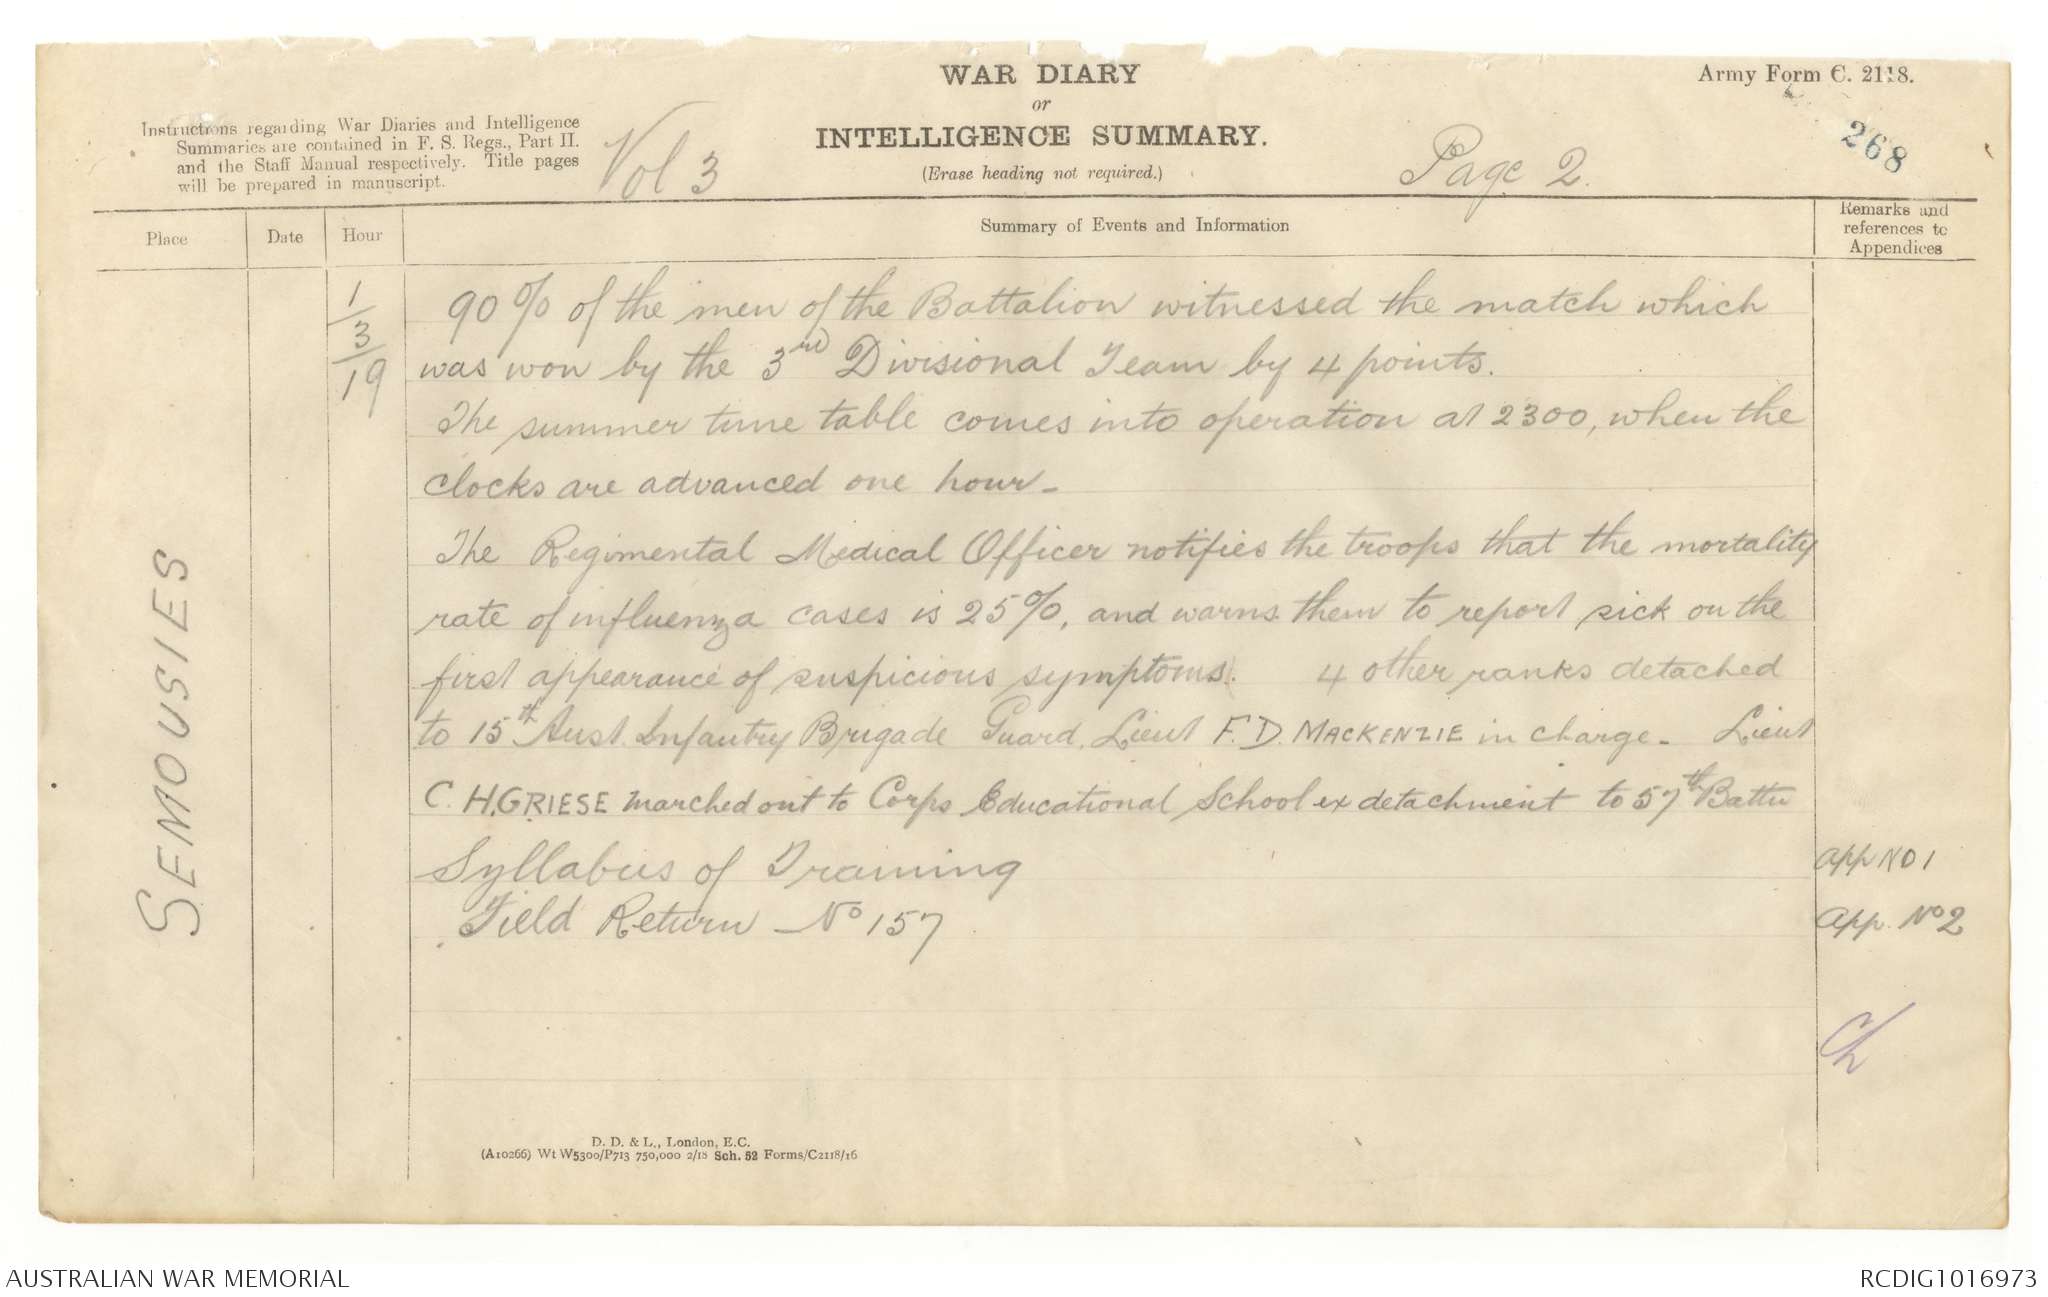 WAR DIARY
or
INTELLIGENCE SUMMARY.
(Erase heading not required.)
Army Form C. 2118.
Instructions regarding War Diaries and Intelligence
Summaries are contained in F. S. Regs., Part II.
and the Staff Manual respectively. Title pages
will be prepared in manuscript.
Vol 3
Page 2.
268
Place
Date
Hour
Summary of Events and Information
Remarks and
references to
Appendices
SEMOUSIES
1
3
19
90% of the men of the Battalion witnessed the match which
was won by the 3rd Divisional Team by 4 points.
The summer time table comes into operation at 2300, when the
clocks are advanced one hour -
The Regimental Medical Officer notifies the troops that the mortality
rate of influenza cases is 25%, and warns them to report sick on the
first appearance of suspicious symptoms. 4 other ranks detached
to 15th Aust. Infantry Brigade Guard, Lieut F. D. MACKENZIE in charge - Lieut
C. H. GRIESE marched out to Corps Educational School ex detachment to 57th Battn
Syllabus of Training
App NO 1
Field Return No 157
App. No 2
D. D. & L., London, E.C.
(A10266) Wt W5300/P713 750,000 2/18 Sch. 52 Forms/C2118/16
AUSTRALIAN WAR MEMORIAL
RCDIG1016973